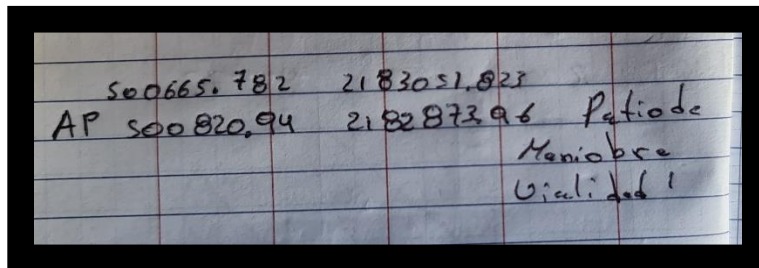 500665.782 2183051.823
AP 500820.94 2182873.96 Patio de
Maniobra
Vialidad 1